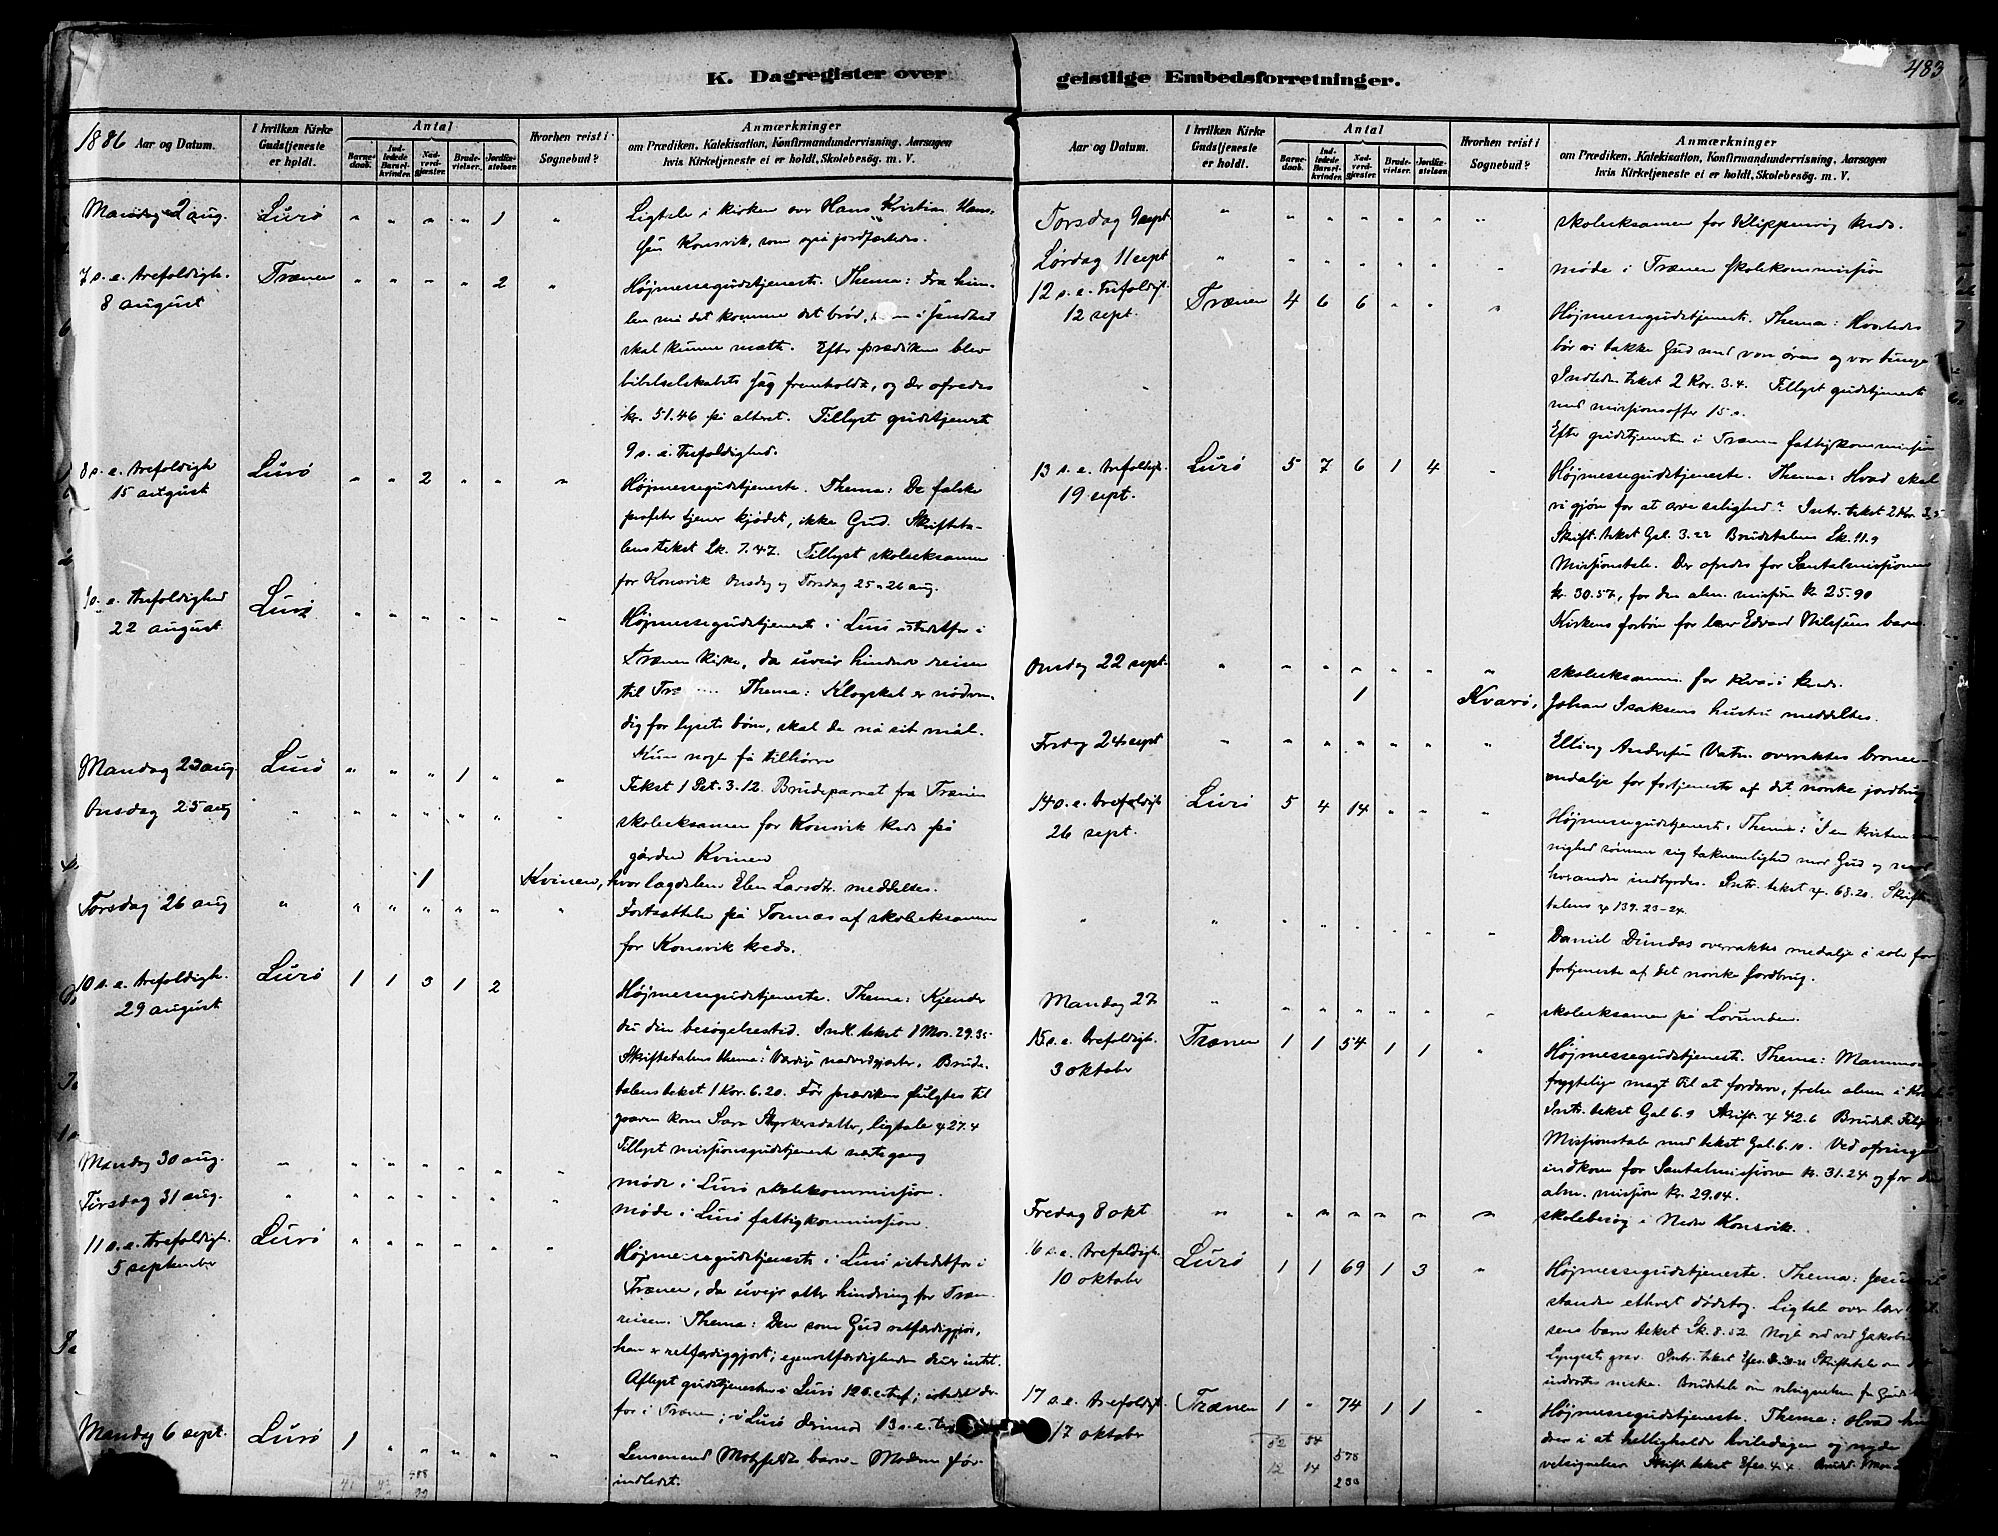 K. Dagregister over geistlige Embedsforretninger.
483
1886 Aar og Datum.
I hvilken Kirke Gudstjeneste er holdt.
Antal
Barnedaab.
Indledede Barselkvinder.
Nadverdgjæster.
Brudevielser.
Jordfæstelser.
Hvorhen reist i Sognebud?
Anmærkninger
om Prædiken, Katekisation, Konfirmandundervisning, Aarsagen
hvis Kirketjeneste ei er holdt, Skolebesøg. m. V.
Mandag 2 aug. Lurö " " " " 1 " Ligtale i kirken over Hans Kristian Han-
sen Konsvik, som også jordfæstedes.
7 s. e. trefoldigh. Trænen " " " " 2 " Højmessegudstjeneste. Thema: Fra him-
8 august len må det komme det brød, som i sandhed
skal kunne mætte. Efter prædiken blev
bibelselskabets sag fremholdt, og der ofredes
kr. 51.46 på alteret. Tillyst gudstjeneste
9 s. e. trefoldighed.
8 s. e. trefoldigh Lurö " " 2 " " " Højmessegudstjeneste. Thema: De falske
15 august profeter tjener kjødet, ikke Gud. Skrifteta-
lens tekst Lk. 7.47. Tillyst skoleeksamen
for Konsvik Onsdag og Torsdag 25 & 26 aug.
9 s. e. trefoldighed Lurö " " " " " " Højmessegudstjeneste i Lurö istedetfor i
22 august Trænen kirke, da uveir hindrede reisen
til Træ Thema: Klogskab er nødven-
dig for lysets børn, skal de nå sit mål.
Kun nogle få tilhørere
Mandag 23 aug. Lurö " " " 1 " " Tekst 1 Pet. 3.12. Brudeparret fra Trænen
Onsdag 25 aug " " " " " " skoleeksamen for Konsvik kreds på
gården Kvinen
1 Kvinen, hvor lagdelen Elen Larsdtr. meddeltes.
Torsdag 26 aug " " " " " " " Fortsættelse på Tonnes af skoleeksamen
for Konsvik kreds.
10 s. e. trefoldigh. Lurö 1 1 3 1 2 Højmessegudstjeneste. Thema: Kjender
29 august du din besøgelsestid. Indl. tekst 1 Mos. 29.35
Skriftetalens thema: "Værdige" nadverdgjæster. Brude-
talens tekst 1 Kor. 6.20. Før prædiken fulgtes til
graven kone Sara Styrkersdatter, ligtale ψ 27.4
Tillyst missionsgudstjeneste næste gang
Mandag 30 aug. " " " " " " " møde i Lurö skolekommission.
Tirsdag 31 aug. " " " " " " " møde i Lurö fattigkommission.
11 s. e. trefoldigh. Lurö " " " " " " Højmessegudstjeneste i Lurö istedetfor i
5 september Trænen, da uveir atter hindrede for Træn-
reisen. Thema: Den som Gud retfærdiggjør,
han er retfærdiggjort; egenretfærdigheden duer intet.
Aflyst gudstjenesten i Lurö 12 s. e. tref; istedet der-
for i Trænen; i Lurö derimod 13 s. e. tref
Mandag 6 sept. Lurö 1 " " " " " Lensmand Motzfeldts barn. Moderen før
indledet.
Aar og Datum.
I hvilken Kirke Gudstjeneste er holdt.
Antal
Barnedaab.
Indledede Barselkvinder.
Nadverdgjæster.
Brudevielser.
Jordfæstelser.
Hvorhen reist i Sognebud?
Anmærkninger
om Prædiken, Katekisation, Konfirmandundervisning, Aarsagen
hvis Kirketjeneste ei er holdt, Skolebesøg. m. V.
Torsdag 9 sept " " " " " " " skoleeksamen for Klippenvig kreds.
Lørdag 11 sept " " " " " " " møde i Trænen skolekommission
12 s. e. trefoldigh. Trænen 4 6 6 " " " Højmessegudstjeneste. Thema: Hvorledes
12 sept. bør vi takke Gud med vore øren og vor tunge
Indledn. tekst 2 Kor. 3.4. Tillyst gudstjeneste
med missionsoffer 15 s.
Efter gudstjenesten i Trænen fattigkommission
13 s. e. trefoldigh. Lurö 5 7 6 1 4 " Højmessegudstjeneste. Thema: Hvad skal
19 sept. vi gjøre for at arve salighed? Intr. tekst 2 Kor 3,5
Skrift. tekst Gal. 3.22 Brudetalens Lk. 11.9
Missionstale. Der ofredes for Santalmissionen
kr. 30.57, for den alm. mission kr 25.90
Kirkens forbøn for lærer Edvard Nilssens barn.
Onsdag 22 sept. " " " " " " " skoleeksamen for Kvarö kreds.
1 Kvarö, Johan Isaksens hustru meddeltes.
Fredag 24 sept " " " " " " " Elling Andersen Vatn. overraktes bronce-
medalje for fortjeneste af det norske jordbrug
14 s. e. trefoldigh Lurö 5 4 14 " " " Højmessegudstjeneste. Thema: I en kristen me-
26 sept. nighed sømmer sig taknemlighed mod Gud og mod
hverandre indbyrdes. Intr. tekst ψ 68.20. Skrifte-
talens ψ 139. 23-24.
" " " " " " " " Daniel Dundas overraktes medalje i sølv for
fortjeneste af det norske Jordbrug.
Mandag 27 " " " " " " " skoleeksamen på Lovunden.
15 s. e. trefoldigh. Trænen 1 1 54 1 1 " Højmessegudstjeneste. Thema: Mammons
3 oktober frygtelige magt til at fordærve, frelse alene i Krist
Intr. tekst Gal 6.9 Skrift. ψ 42.6 Brudet. Filip
Missionstale med tekst Gal. 6.10. Ved ofringen
indkom for Santalmissionen kr. 31.24 og for den
alm. mission kr. 29.04.
Fredag 8 okt. " " " " " " " skolebesøg i Nedre Konsvik.
16 s. e. trefoldigh. Lurö 1 1 69 1 3 " Højmessegudstjeneste. Thema: Jesus
10 oktober standser ethvert dødstog. Ligtale over lærer
sens barn tekst Lk. 8.52 Nogle ord ved Jakob
Lyngsets grav. Intr. tekst Efes. 3.20-21 Skriftetale om det
indvortes menneske. Brudetale om velsignelsen fra Gud
17 s. e. trefoldigh. Trænen 1 " 74 1 1 " Højmessegudstjeneste. Thema: Hvad hin-
17 oktober drer i at helligholde hviledagen og nyde
velsignelsen. Skrift. tekst Efes. 4.4. Brudet.
41 488
52 54 578
12 14 230